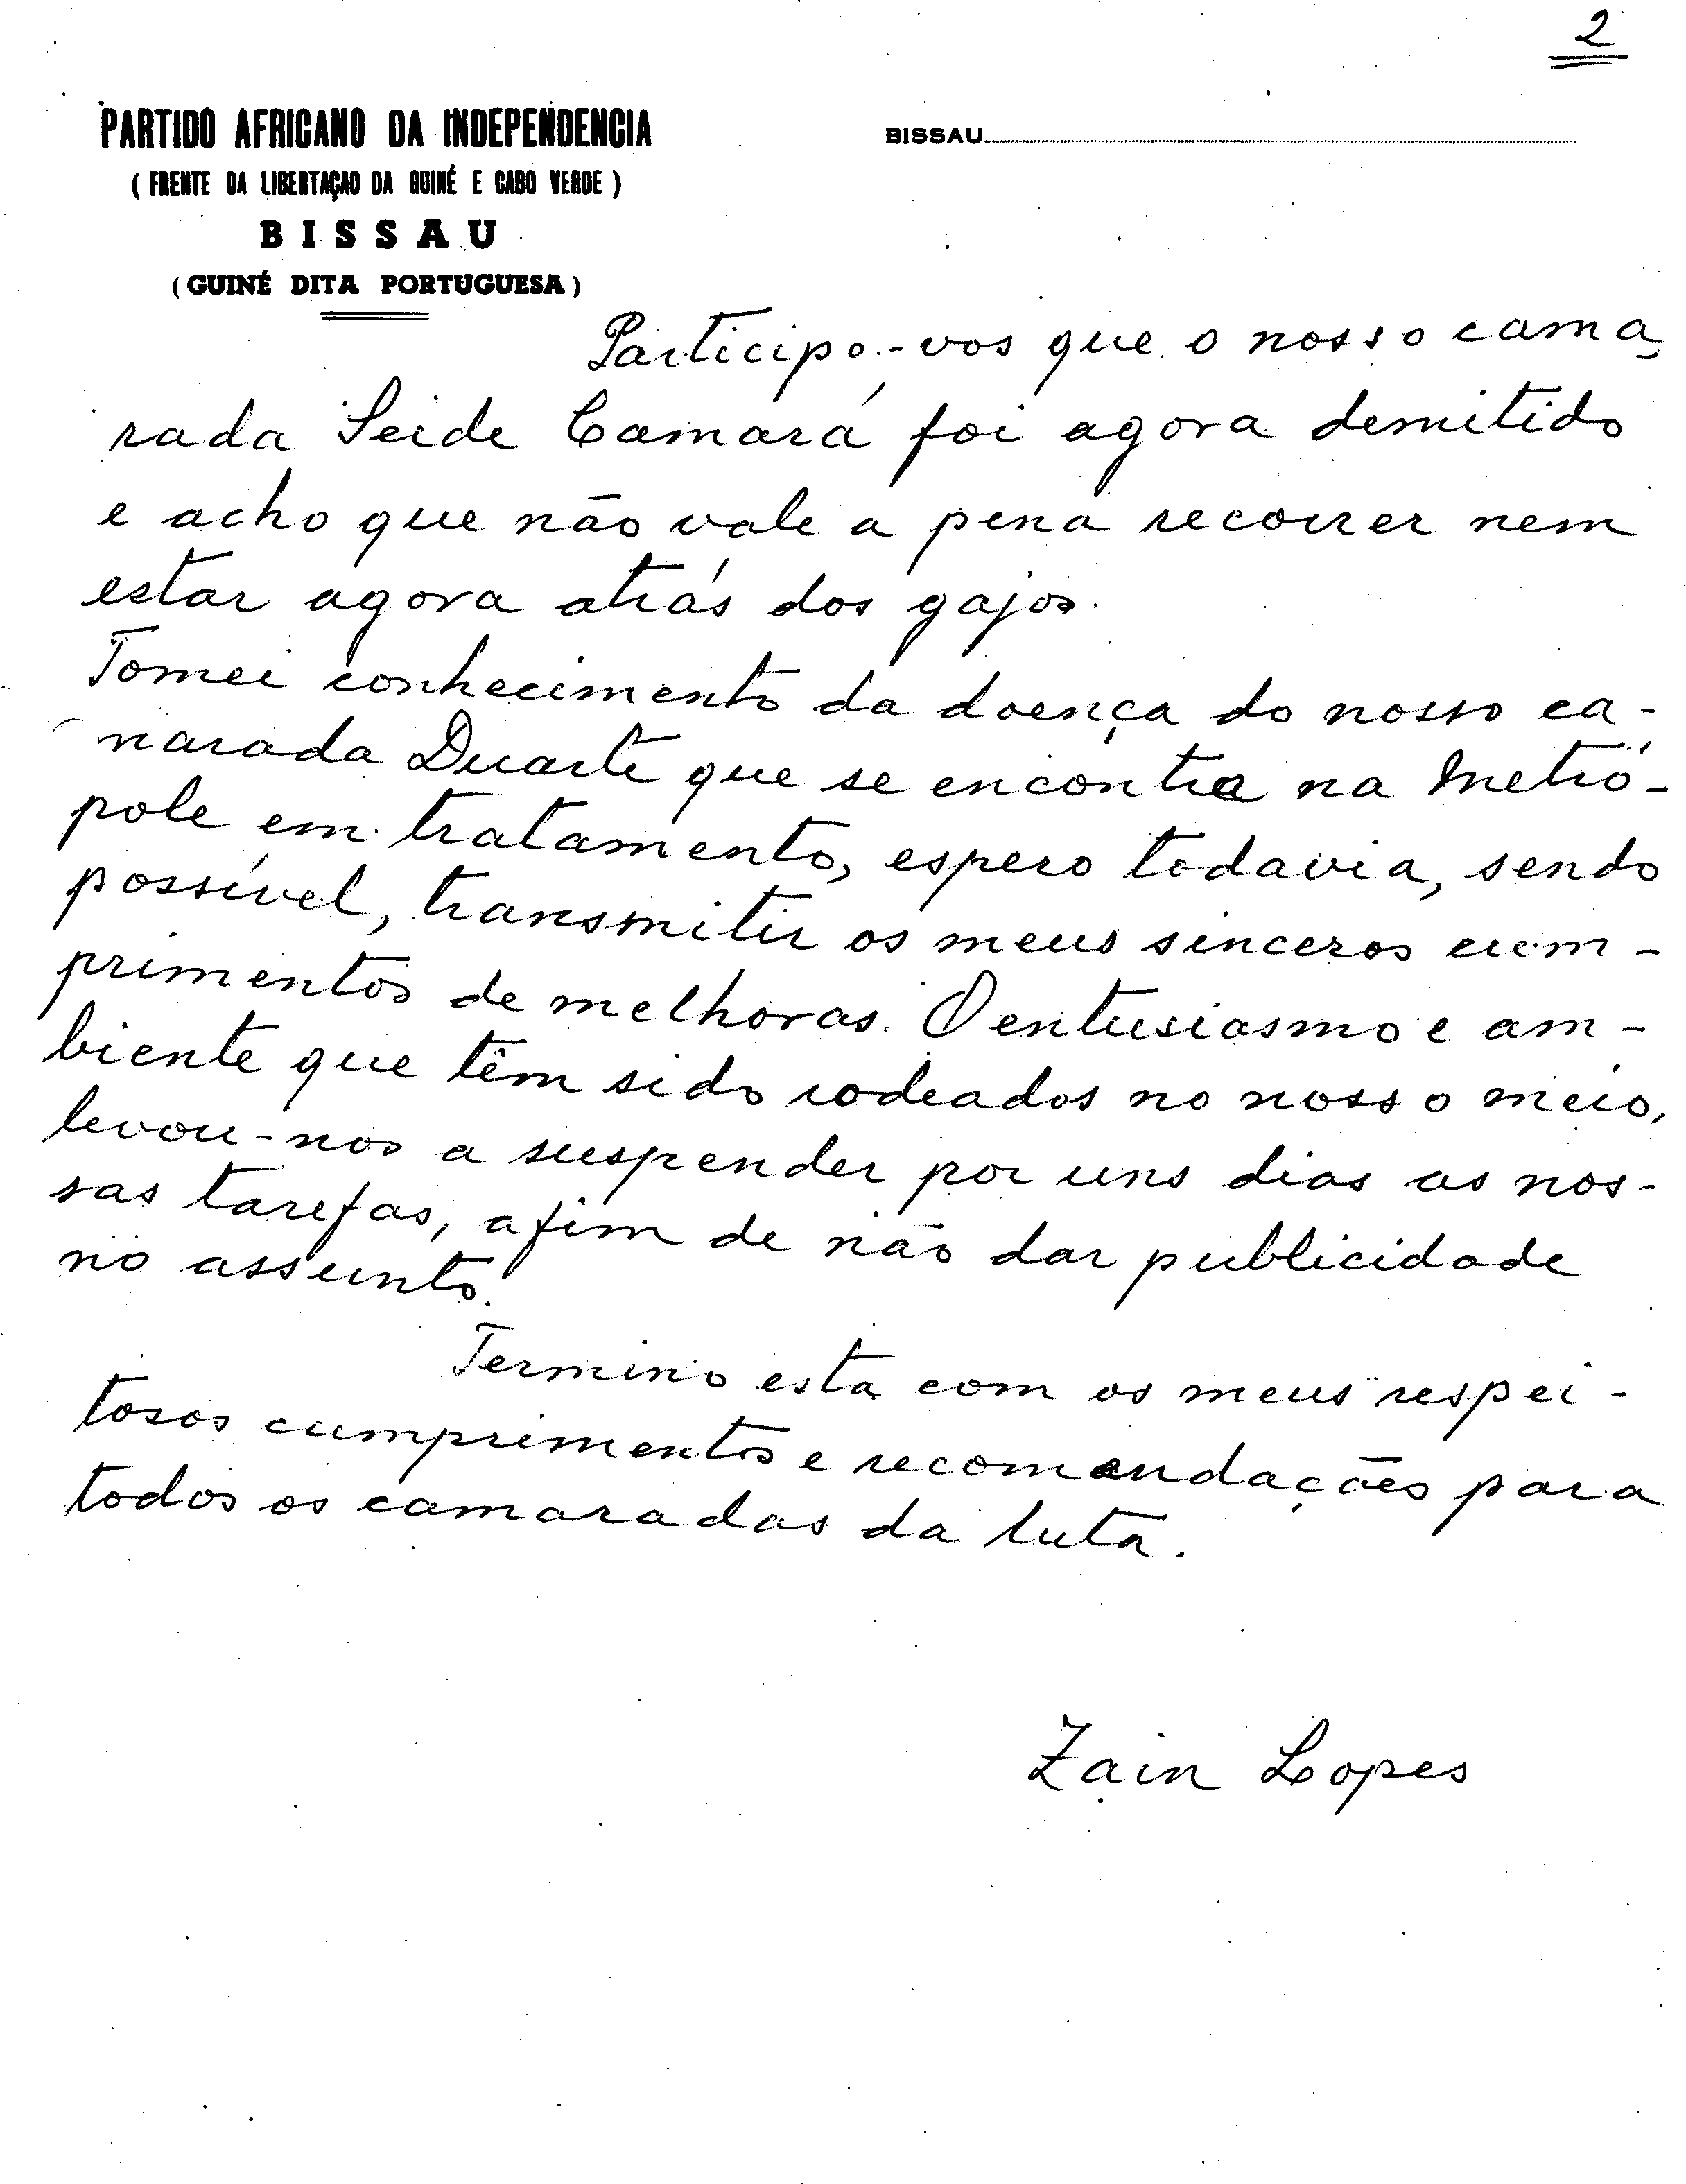 2
PARTIDO AFRICANO DA INDEPENDENCIA
BISSAU
( FRENTE DA LIBERTAÇAO DA GUINÉ E CABO VERDE )
BISSAU
(GUINÉ DITA PORTUGUESA)
Participo-vos que o nosso cama
rada Seide Camará foi agora demitido
e acho que não vale a pena recorrer nem
estar agora atrás dos gajos.
Tomei conhecimento da doença do nosso ca-
marada Duarte que se encontra na Metró-
pole em tratamento, espero todavia, sendo
possível, transmitir os meus sinceros cum-
primentos de melhoras. O entusiasmo e am-
biente que têm sido rodeados no nosso meio,
levou-nos a suspender por uns dias as nos-
sas tarefas, afim de não dar publicidade
no assunto.
Termino esta com os meus respei-
tosos cumprimentos e recomendações para
todos os camaradas da luta.
Zain Lopes